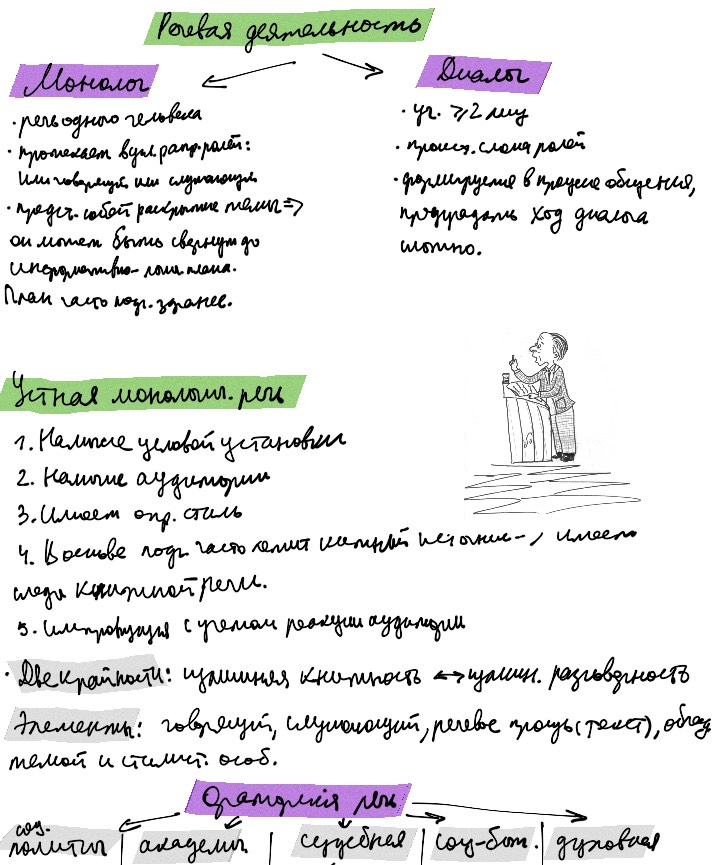 Речевая деятельность
Монолог
Диалог
· речь одного человека
· протекает в усл. распр. ролей:
или говорящий или слушающий
· предст. собой раскрытие темы ⇒
он может быть свернут до
информативно- плана.
План часто подг. заранее.
· уч. ⩾2 лиц
· происх. смена ролей
· формируется в процессе общения,
предугадать ход диалога
сложно.
Устная монологич. речь
1. Наличие целевой установки
2. Наличие аудитории
3. Имеет опр. стиль
4. В основе подг. часто лежит книжный источник -, имеет
следы книжной речи.
5. импровизация с учетом реакции аудитории
· Две крайности: излишняя книжность ↔ излишн. разговорность
Элементы: говорящий, слушающий, речевое произв (текст), облад
темой и стилист. особ.
Ораторская речь
соц.
политич | академич | судебная | соц-быт. | духовная